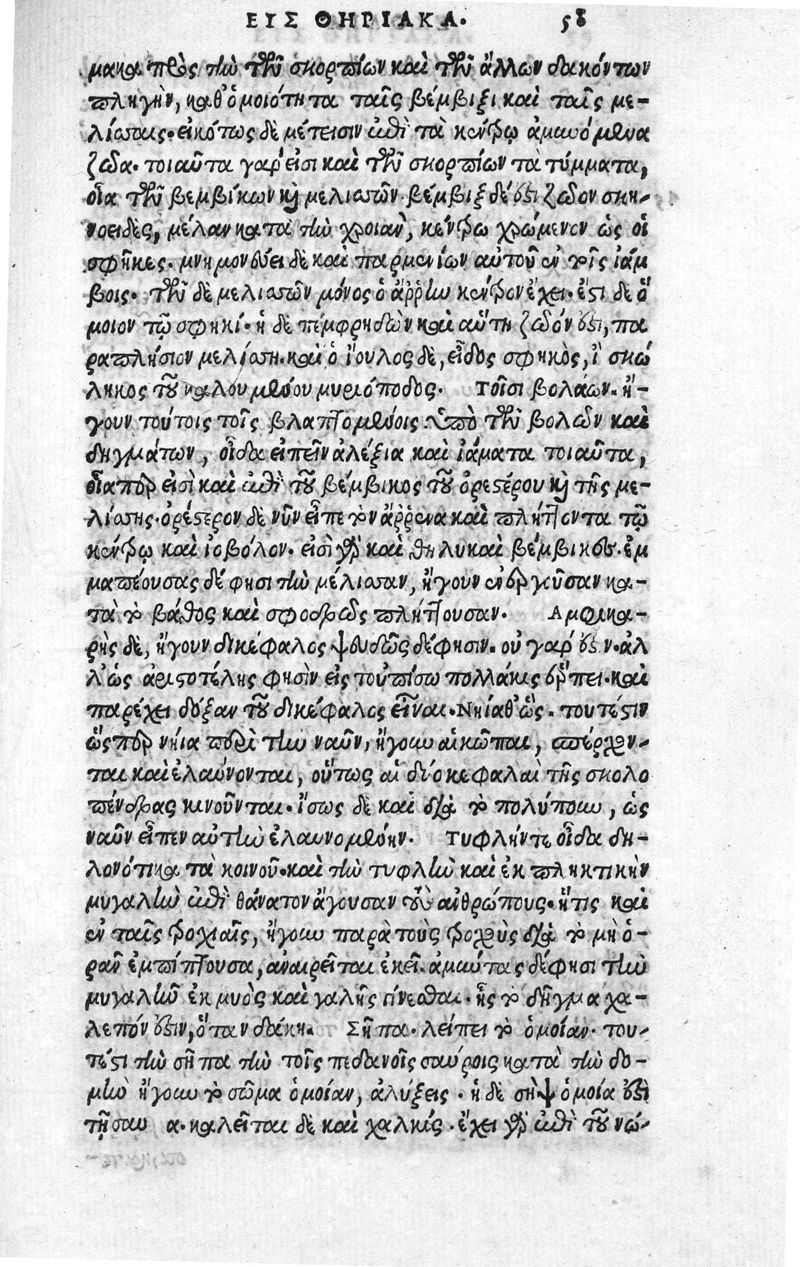 ΕΙΣ ΘΗΡΙΑΚΑ. 58
μακα πρὸς τὴν τῶν σκορπίων καὶ τῶν ἄλλων δακόντων
πληγὴν, καθ' ὁμοιότητα ταῖς βέμβιξι καὶ ταῖς με-
λίσσαις. εἰκότως δὲ μέτεισιν ἐπὶ τὰ κέντρῳ ἀμυνόμενα
ζῶα. τοιαῦτα γάρ εἰσι καὶ τῶν σκορπίων τὰ τύμματα,
οἷα τῶν βεμβίκων καὶ μελισσῶν. βέμβιξ δέ ἐστι ζῶον σκη-
νοειδὲς, μέλαν κατὰ τὴν χροιὰν, κέντρῳ χρώμενον ὡς οἱ
σφῆκες. μνημονεύει δὲ καὶ παρμενίων αὐτοῦ ἐν τοῖς ἰάμ
βοις. τῶν δὲ μελισσῶν μόνος ὁ ἄῤῥην κέντρον ἔχει. ἔστι δὲ ὅ
μοιον τῷ σφηκί. ἡ δὲ πεμφρηδὼν καὶ αὕτη ζῶόν ἐστι, πα
ραπλήσιον μελίσσῃ. καὶ ὁ ἴουλος δὲ, εἶδος σφηκὸς, ἢ σκώ
ληκος τοῦ καλουμένου μυριόποδος. Τοῖσι βολάων. ἤ-
γουν τούτοις τοῖς βλαπτομένοις ὑπὸ τῶν βολῶν καὶ
δηγμάτων, οἶδα εἰπεῖν ἀλέξια καὶ ἰάματα τοιαῦτα,
οἷάπερ εἰσὶ καὶ ἐπὶ τοῦ βέμβικος τοῦ ὀρεστέρου καὶ τῆς με-
λίσσης. ὀρέστερον δὲ νῦν εἶπε τὸν ἄῤῥενα καὶ πλήττοντα τῷ
κέντρῳ καὶ ἰοβόλον. εἰσὶ γὰρ καὶ θηλυκαὶ βέμβικες. ἐμ
ματέουσας δέ φησι τὴν μέλισσαν, ἤγουν ἐνεργοῦσαν κα-
τὰ τὸ βάθος καὶ σφοδρῶς πλήττουσαν. Αμφικα-
ρὴς δὲ, ἤγουν δικέφαλος. ψευδῶς δέ φησιν. οὐ γάρ ἐστιν. ἀλ
λ' ὡς ἀριστοτέλης φησὶν εἰς τοὐπίσω πολλάκις ἕρπει. καὶ
παρέχει δόξαν τοῦ δικέφαλος εἶναι. Νήϊα θ' ὥς. τουτέστιν
ὥσπερ νήϊα περὶ τὴν ναῦν, ἤγουν αἱ κῶπαι, σπέρχον-
ται καὶ ἐλαύνονται, οὕτως αἱ δύο κεφαλαὶ τῆς σκολο
πένδρας κινοῦνται. ἴσως δὲ καὶ διὰ τὸ πολύπουν, ὡς
ναῦν εἶπεν αὐτὴν ἐλαυνομένην. Τυφλήν τε οἶδα δη-
λονότι κατὰ κοινοῦ. καὶ τὴν τυφλὴν καὶ ἐκπληκτικὴν
μυγαλὴν ἐπὶ θάνατον ἄγουσαν τοὺς ἀνθρώπους. ἥτις καὶ
ἐν ταῖς τροχιαῖς, ἤγουν παρὰ τοὺς τροχοὺς διὰ τὸ μὴ ὁ-
ρᾶν ἐμπίπτουσα, ἀναιρεῖται ἐκεῖ. ἀμύντας δέ φησι τὴν
μυγαλῆν ἐκ μυὸς καὶ γαλῆς γίνεσθαι. ἧς τὸ δῆγμα χα-
λεπόν ἐστιν, ὅταν δάκῃ. Σῆπα. λείπει τὸ ὁμοίαν. του-
τέστι τὴν σῆπα τὴν τοῖς πεδανοῖς σαύροις κατὰ τὴν δο-
μὴν ἤγουν τὸ σῶμα ὁμοίαν, ἀλύξεις. ἡ δὲ σὴψ ὁμοία ἐστὶ
τῇ σαύ α. καλεῖται δὲ καὶ χαλκίς. ἔχει γὰρ ἐπὶ τοῦ νώ-